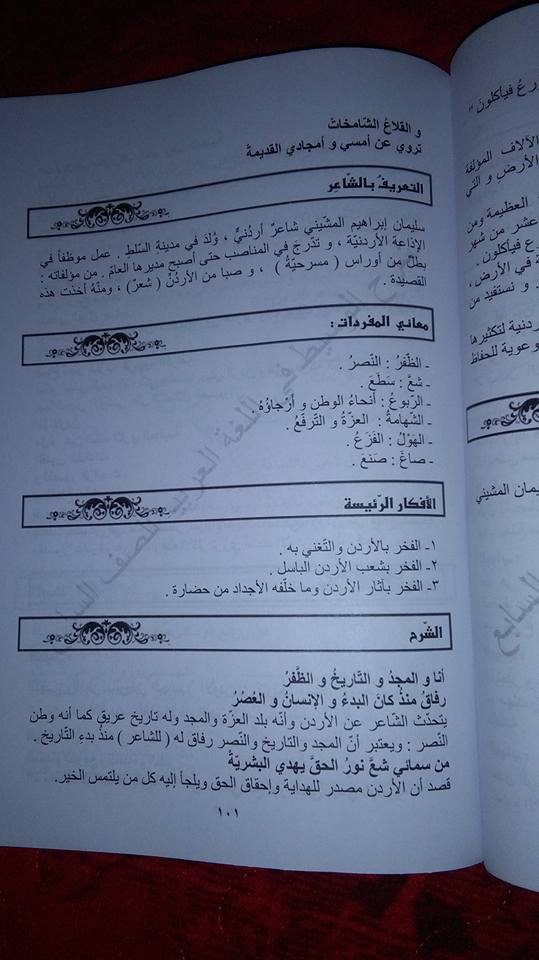 و القلاعُ الشّامخاتُ
تروي عن أمسي و أمجادي القديمةُ
التعريفُ بالشّاعِر
سليمان إبراهيم المشيني شاعرٌ أردُنيٌّ ، وُلدَ في مدينة السّلط . عمل موظفاً في
الإذاعة الأردنيّة ، و تدّرجَ في المناصب حتى أصبح مديرها العامّ . من مؤلفاته :
بطلٌ من أوراس ( مسرحيّةٌ ) ، و صبا من الأردُنّ ( شعرٌ) ، ومنْهُ أخذت هذه
القصيدة .
معاني المفردات :
- الظّفرُ : النّصرُ .
- شعَّ : سَطَعَ .
- الرّبوعُ : أنحاءُ الوطن و أرْجاؤُهُ .
- الشّهامةُ : العزّةُ و التّرفّعُ .
- الهَوْلُ : الفَزَعُ .
- صاغَ : صَنعَ .
الأفكار الرّئيسة
١- الفخر بالأردن والتّغني به .
٢- الفخر بشعب الأردن الباسل .
٣- الفخر بآثار الأردن وما خلّفه الأجداد من حضارة .
الشّرح
أنا و المجدُ و التّاريخُ و الظّفرُ
رفاقٌ منذُ كانَ البدءُ و الإنسانُ و العُصُرُ
يتحدّث الشّاعر عن الأردن وأنّه بلد العزّة والمجد وله تاريخ عريق كما أنه وطن
النّصر : ويعتبر أنّ المجد والتاريخ والنّصر رفاق له ( للشاعر ) منذُ بدءِ التّاريخ .
من سمائي شعَّ نورُ الحقَّ يهدي البشريّةُ
قصد أن الأردن مصدر للهداية وإحقاق الحق ويلجأ إليه كل من يلتمس الخير.
١٠١
رعُ فيأكلون "
الآلاف المؤلفة
الأرض و التي
العظيمة ومن
عشر من شهر
ع فيأكلون .
ة في الأرض ،
و نستفيد من
ردنية لتكثيرها
و عوية للحفاظ
يمان المشيني